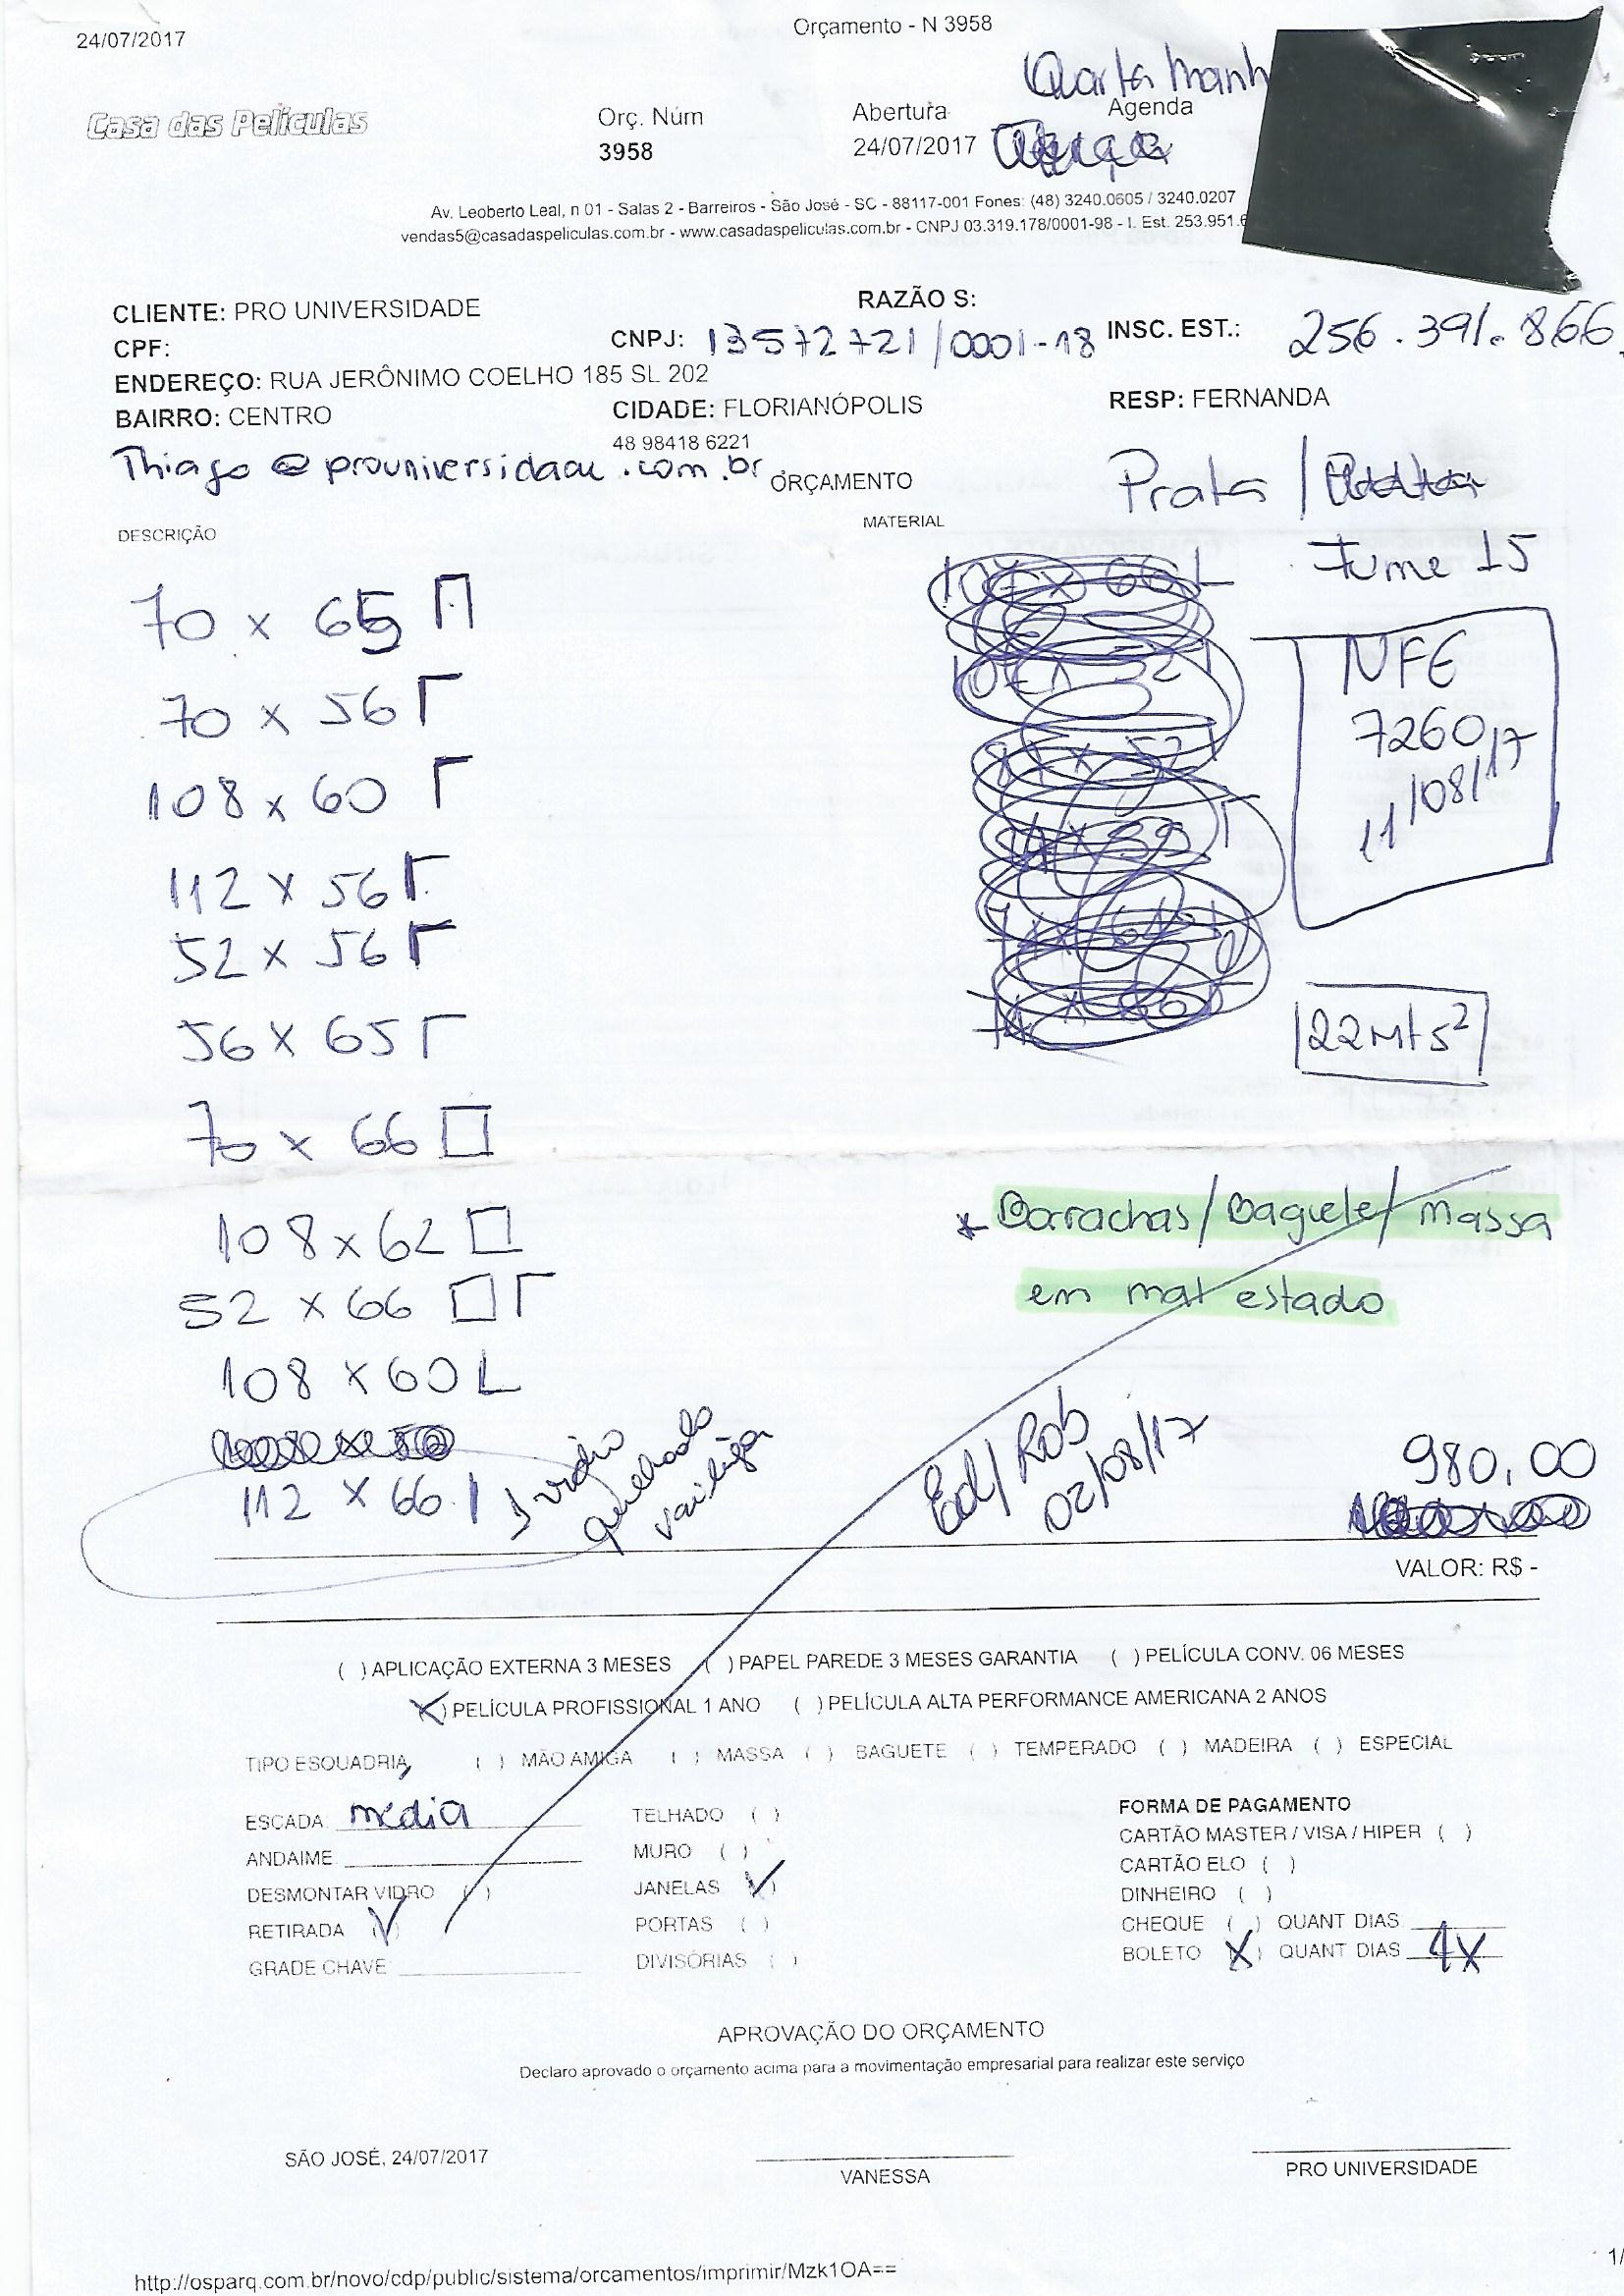 24/07/2017
Orçamento - N 3958
Quarta manh
Casa das Películas
Orç. Núm
Abertura
Agenda
3958
24/07/2017
Av. Leoberto Leal, n 01 - Salas 2 - Barreiros - São José - SC - 88117-001 Fones: (48) 3240.0605 / 3240.0207
vendas5@casadaspeliculas.com.br - www.casadaspeliculas.com.br - CNPJ 03.319.178/0001-98 - I. Est. 253.951.6
CLIENTE: PRO UNIVERSIDADE
RAZÃO S:
CPF:
CNPJ: 13572721/0001-18
INSC. EST.: 256.391.866
ENDEREÇO: RUA JERÔNIMO COELHO 185 SL 202
BAIRRO: CENTRO
CIDADE: FLORIANÓPOLIS
RESP: FERNANDA
48 98418 6221
Thiago @ prouniversidade.com.br
ORÇAMENTO
Prata /
DESCRIÇÃO
MATERIAL
Fume 15
70 x 65
70 x 56
108 x 60
112 x 56
52 x 56
56 x 65
70 x 66
108 x 62
52 x 66
108 x 60
112 x 66
NFE
7260/17
11/08/17
22 Mts²
* Borrachas/Baguete/massa
em mal estado
1 vidro
quebrado
Ed/Rob
02/08/17
980,00
VALOR: R$ -
( ) APLICAÇÃO EXTERNA 3 MESES ( ) PAPEL PAREDE 3 MESES GARANTIA ( ) PELÍCULA CONV. 06 MESES
(X) PELÍCULA PROFISSIONAL 1 ANO ( ) PELÍCULA ALTA PERFORMANCE AMERICANA 2 ANOS
TIPO ESQUADRIA ( ) MÃO AMIGA ( ) MASSA ( ) BAGUETE ( ) TEMPERADO ( ) MADEIRA ( ) ESPECIAL
ESCADA: media
TELHADO ( )
FORMA DE PAGAMENTO
ANDAIME:
MURO ( )
CARTÃO MASTER / VISA / HIPER ( )
DESMONTAR VIDRO ( )
JANELAS (✓)
CARTÃO ELO ( )
RETIRADA (✓)
PORTAS ( )
DINHEIRO ( )
GRADE CHAVE:
DIVISÓRIAS ( )
CHEQUE ( ) QUANT DIAS
BOLETO (X) QUANT DIAS 4x
APROVAÇÃO DO ORÇAMENTO
Declaro aprovado o orçamento acima para a movimentação empresarial para realizar este serviço
SÃO JOSÉ, 24/07/2017
VANESSA
PRO UNIVERSIDADE
http://osparq.com.br/novo/cdp/public/sistema/orcamentos/imprimir/Mzk1OA==
1/